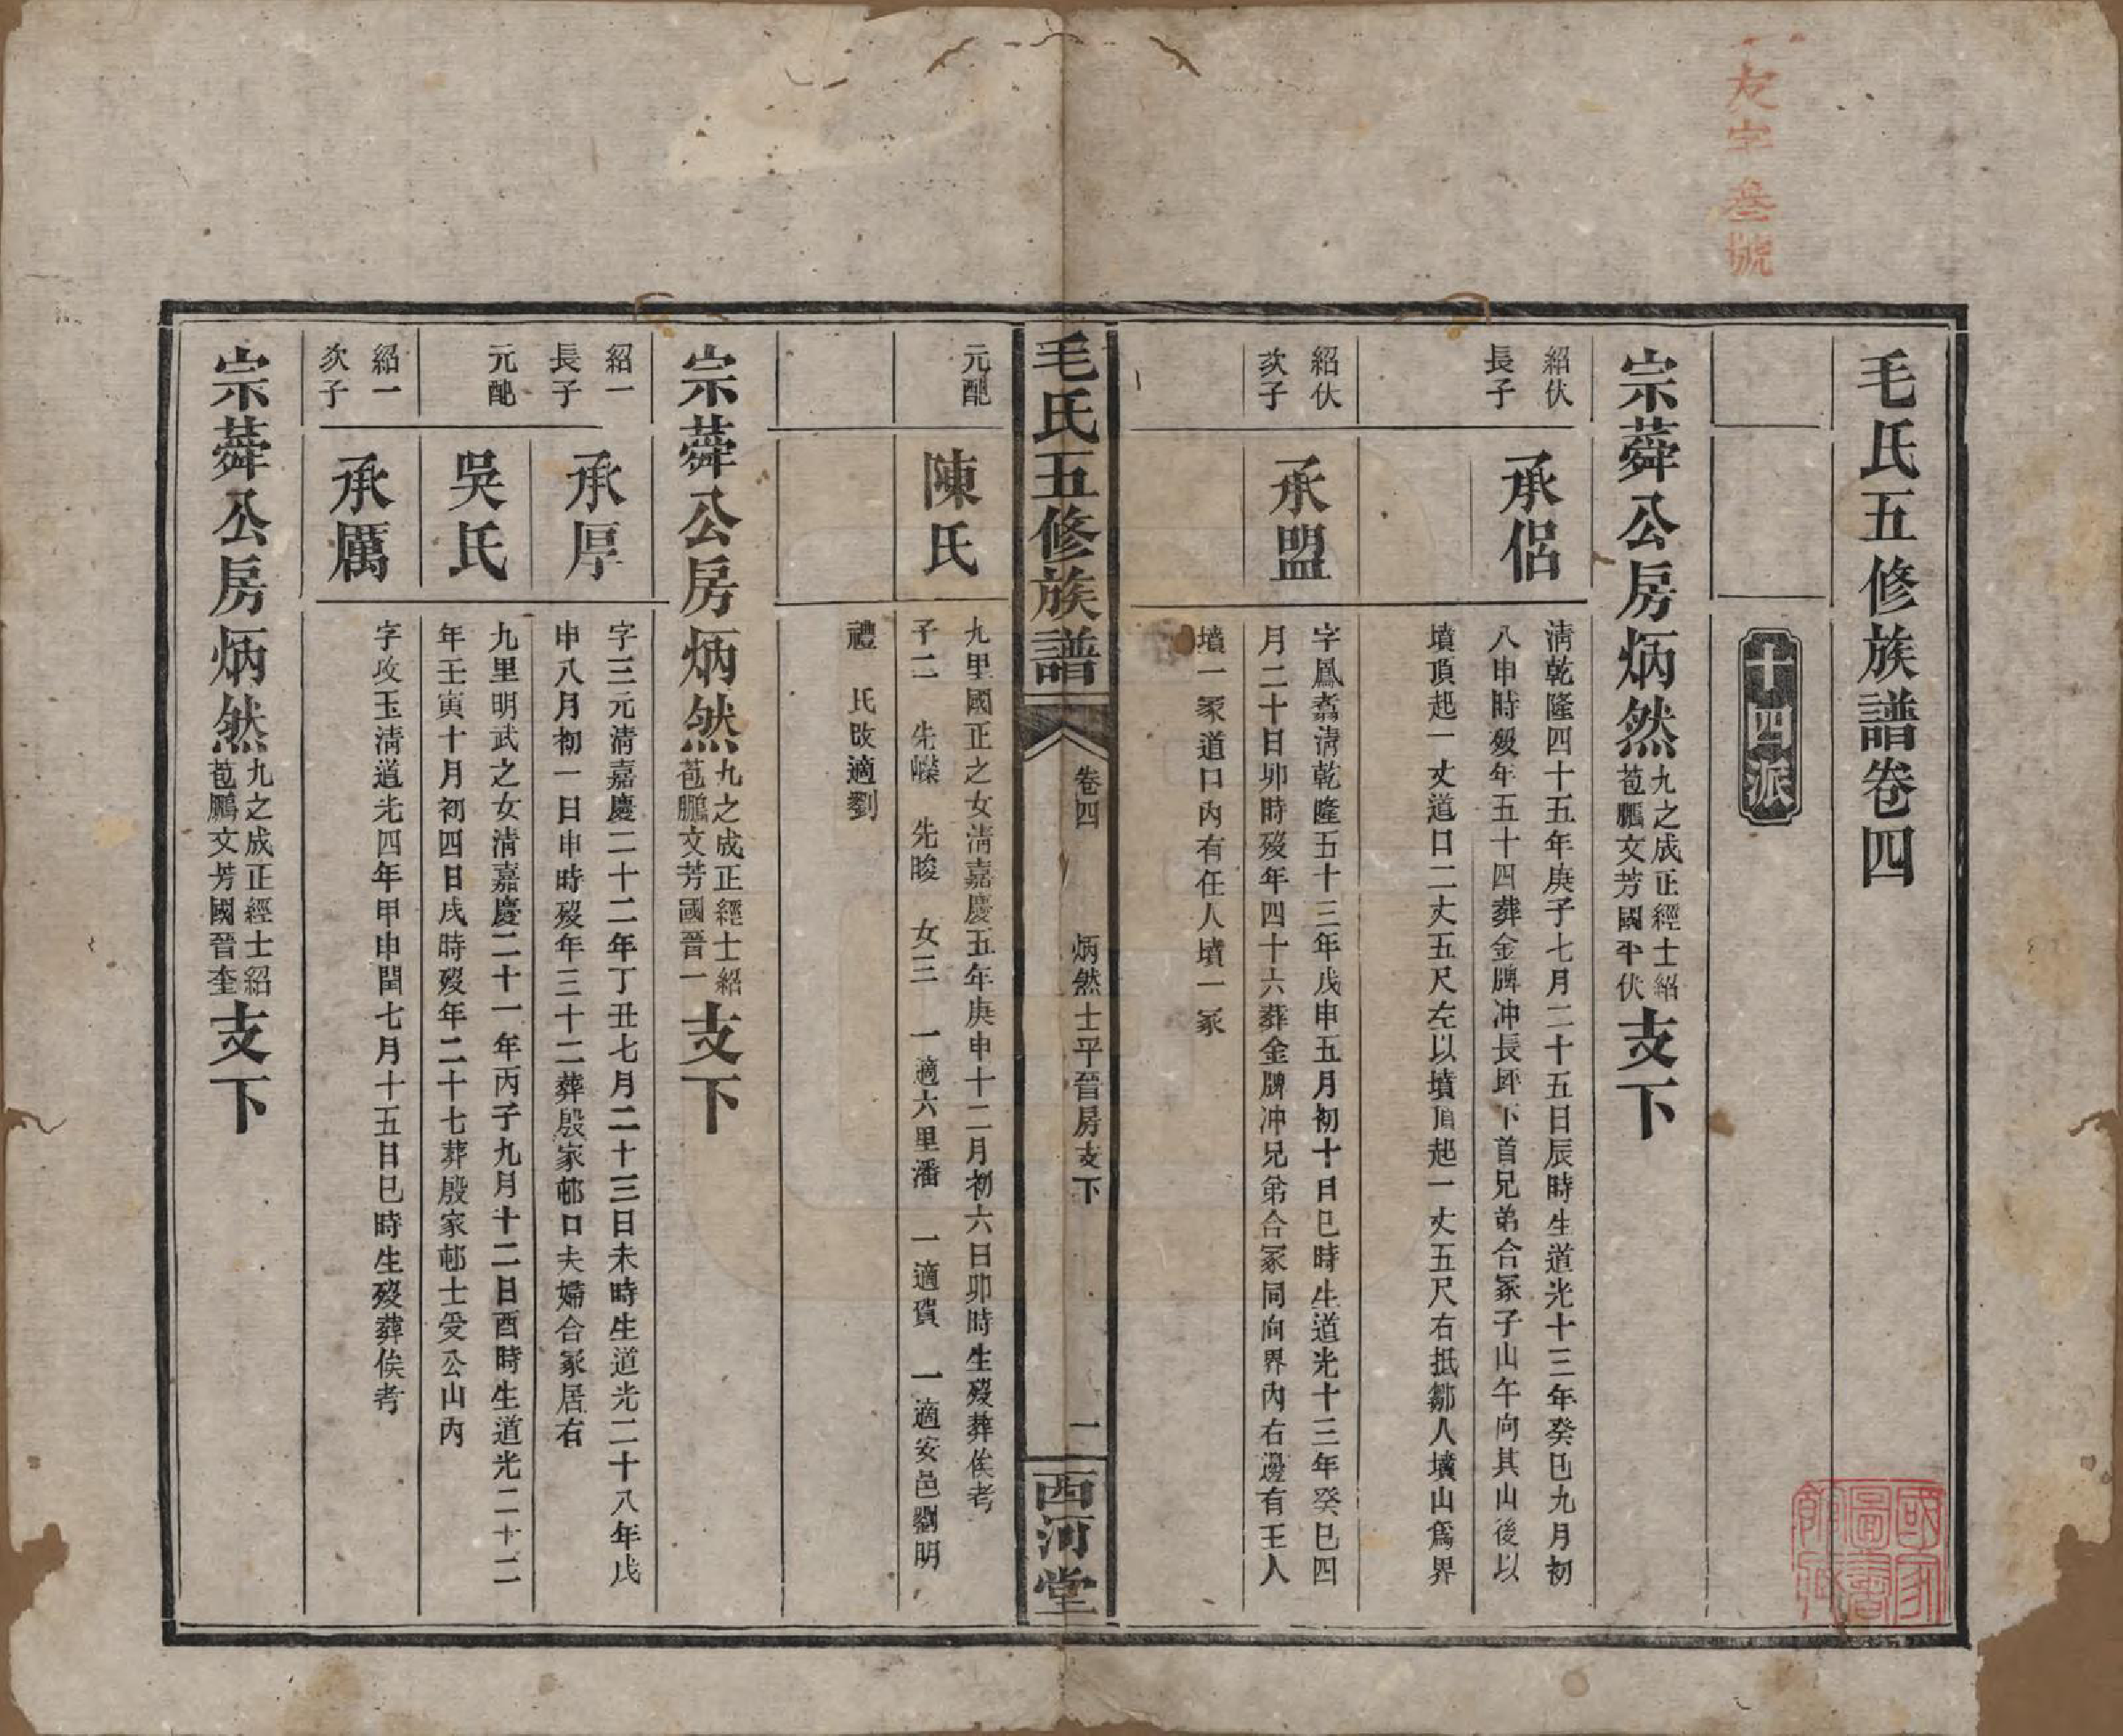 友字叁號
毛氏五修族譜卷四
十四派
宗蕣公房炳然九之成正經士紹
苞鵬文芳國平伏
支下
紹伏
長子
承侶
淸乾隆四十五年庚子七月二十五日辰時生道光十三年癸巳九月初
八申時歿年五十四葬金牌冲長坪下首兄弟合冢子山午向其山後以
墳頂起一丈道口二丈五尺左以墳頂起一丈五尺右抵鄒人墳山爲界
紹伏
次子
承盟
字鳳翥淸乾隆五十三年戊申五月初十日巳時生道光十三年癸巳四
月二十日卯時歿年四十六葬金牌冲兄弟合冢同向界內右邊有王人
墳一冢道口內有任人墳一冢
毛氏五修族譜
卷四
炳然士平晉房支下
一
西河堂
元配
陳氏
九里國正之女淸嘉慶五年庚申十二月初六日卯時生歿葬俟考
子二 先嶫 先晙 女三 一適六里潘 一適賀 一適安邑劉明
禮 氏改適劉
宗蕣公房炳然九之成正經士紹
苞鵬文芳國晉一
支下
紹一
長子
承厚
字三元淸嘉慶二十二年丁丑七月二十三日未時生道光二十八年戊
申八月初一日申時歿年三十二葬殷家邨口夫婦合冢居右
元配
吳氏
九里明武之女淸嘉慶二十一年丙子九月十二日酉時生道光二十二
年壬寅十月初四日戌時歿年二十七葬殷家邨士受公山內
紹一
次子
承厲
字攻玉淸道光四年甲申閏七月十五日巳時生歿葬俟考
宗蕣公房炳然九之成正經士紹
苞鵬文芳國晉奎
支下